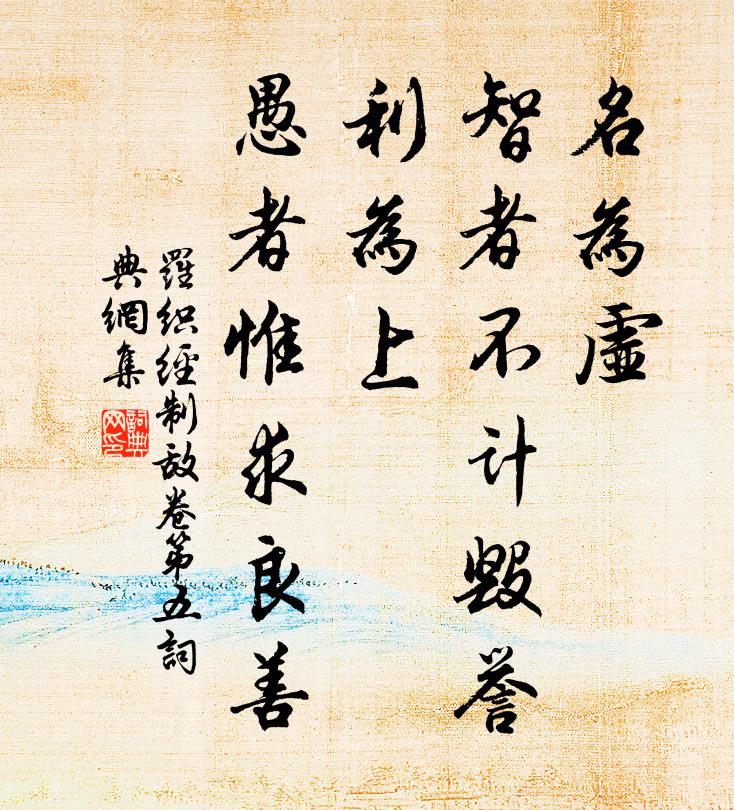 名為虛
智者不計毀譽
利為上
愚者惟求良善
羅織經制敵卷第五詞
典網集
詞典
网印